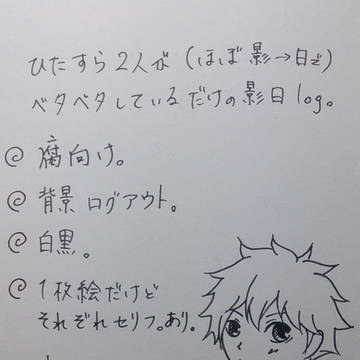 ひたすら2人が(ほぼ影→日が)
ベタベタしているだけの影日log。
@ 腐向け。
@ 背景ログアウト。
@ 白黒。
@ 1枚絵だけど
それぞれセリフ。あり。